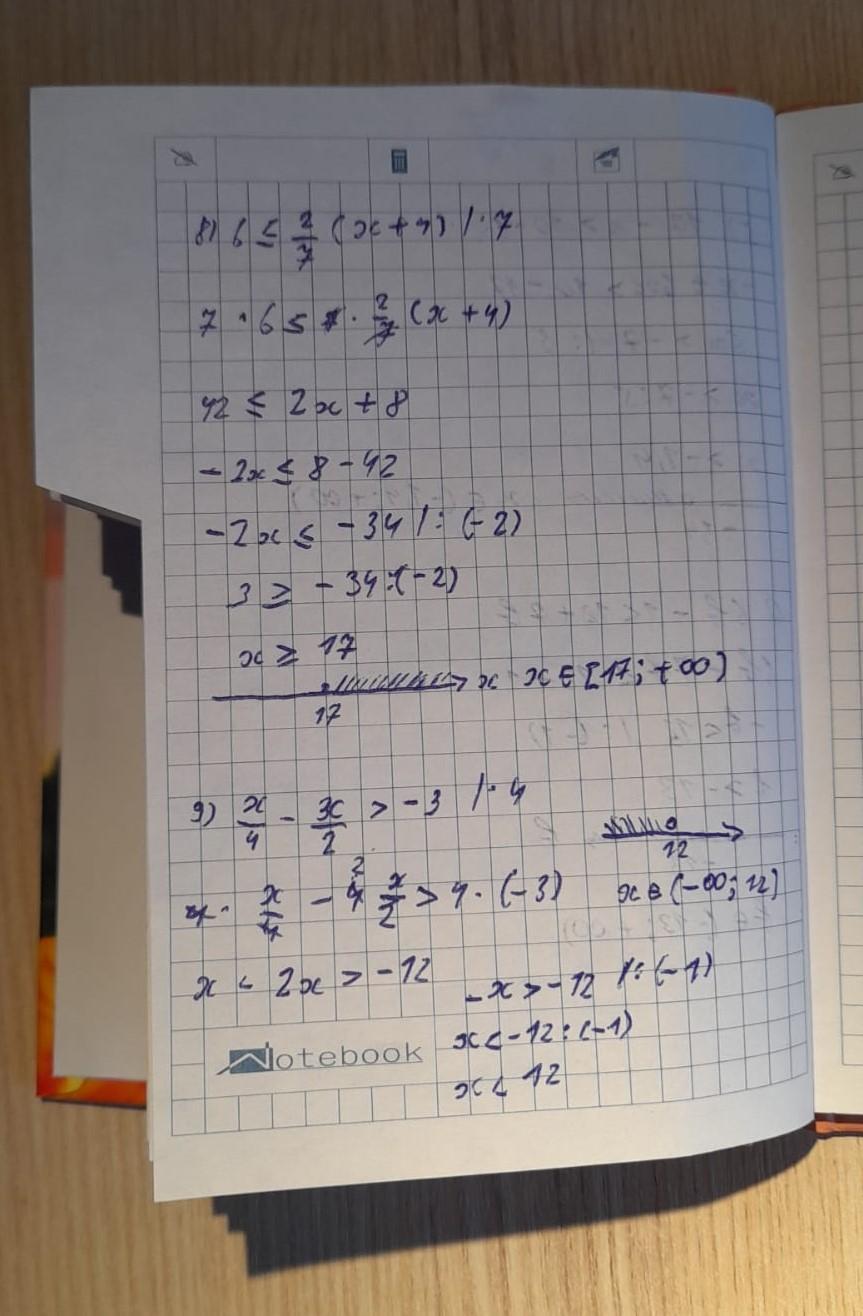 8) 6 ≤ 2/7 (x+4) /·7
7 · 6 ≤ 7 · 2/7 (x+4)
42 ≤ 2x + 8
-2x ≤ 8-42
-2x ≤ -34 /:(-2)
3 ≥ -34:(-2)
x ≥ 17
x x∈[17;+∞)
17
9) x/4 - x/2 > -3 /·4
12
4· x/4 - 4 2 x/2 > 4·(-3) x∈(-∞;12]
x - 2x > -12
-x > -12 /:(-1)
x < -12:(-1)
x < 12
Notebook